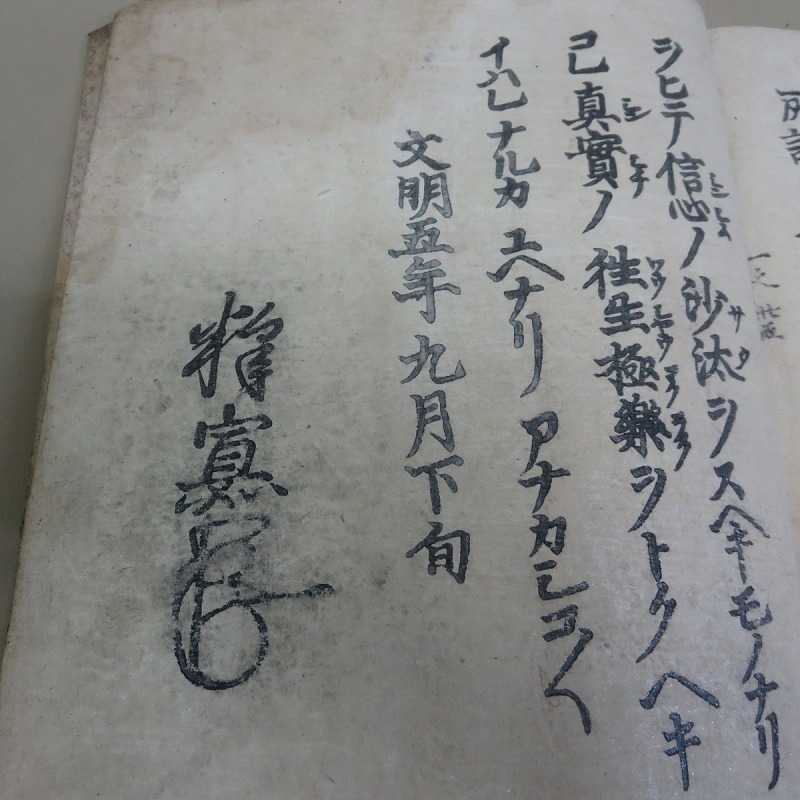 所詮
シヒテ信心ノ沙汰ヲスヘキモノナリ
コレ真實ノ往生極樂ヲトクヘキ
イハレナルカユヘナリアナカシコ〱
文明五年九月下旬
釋實如